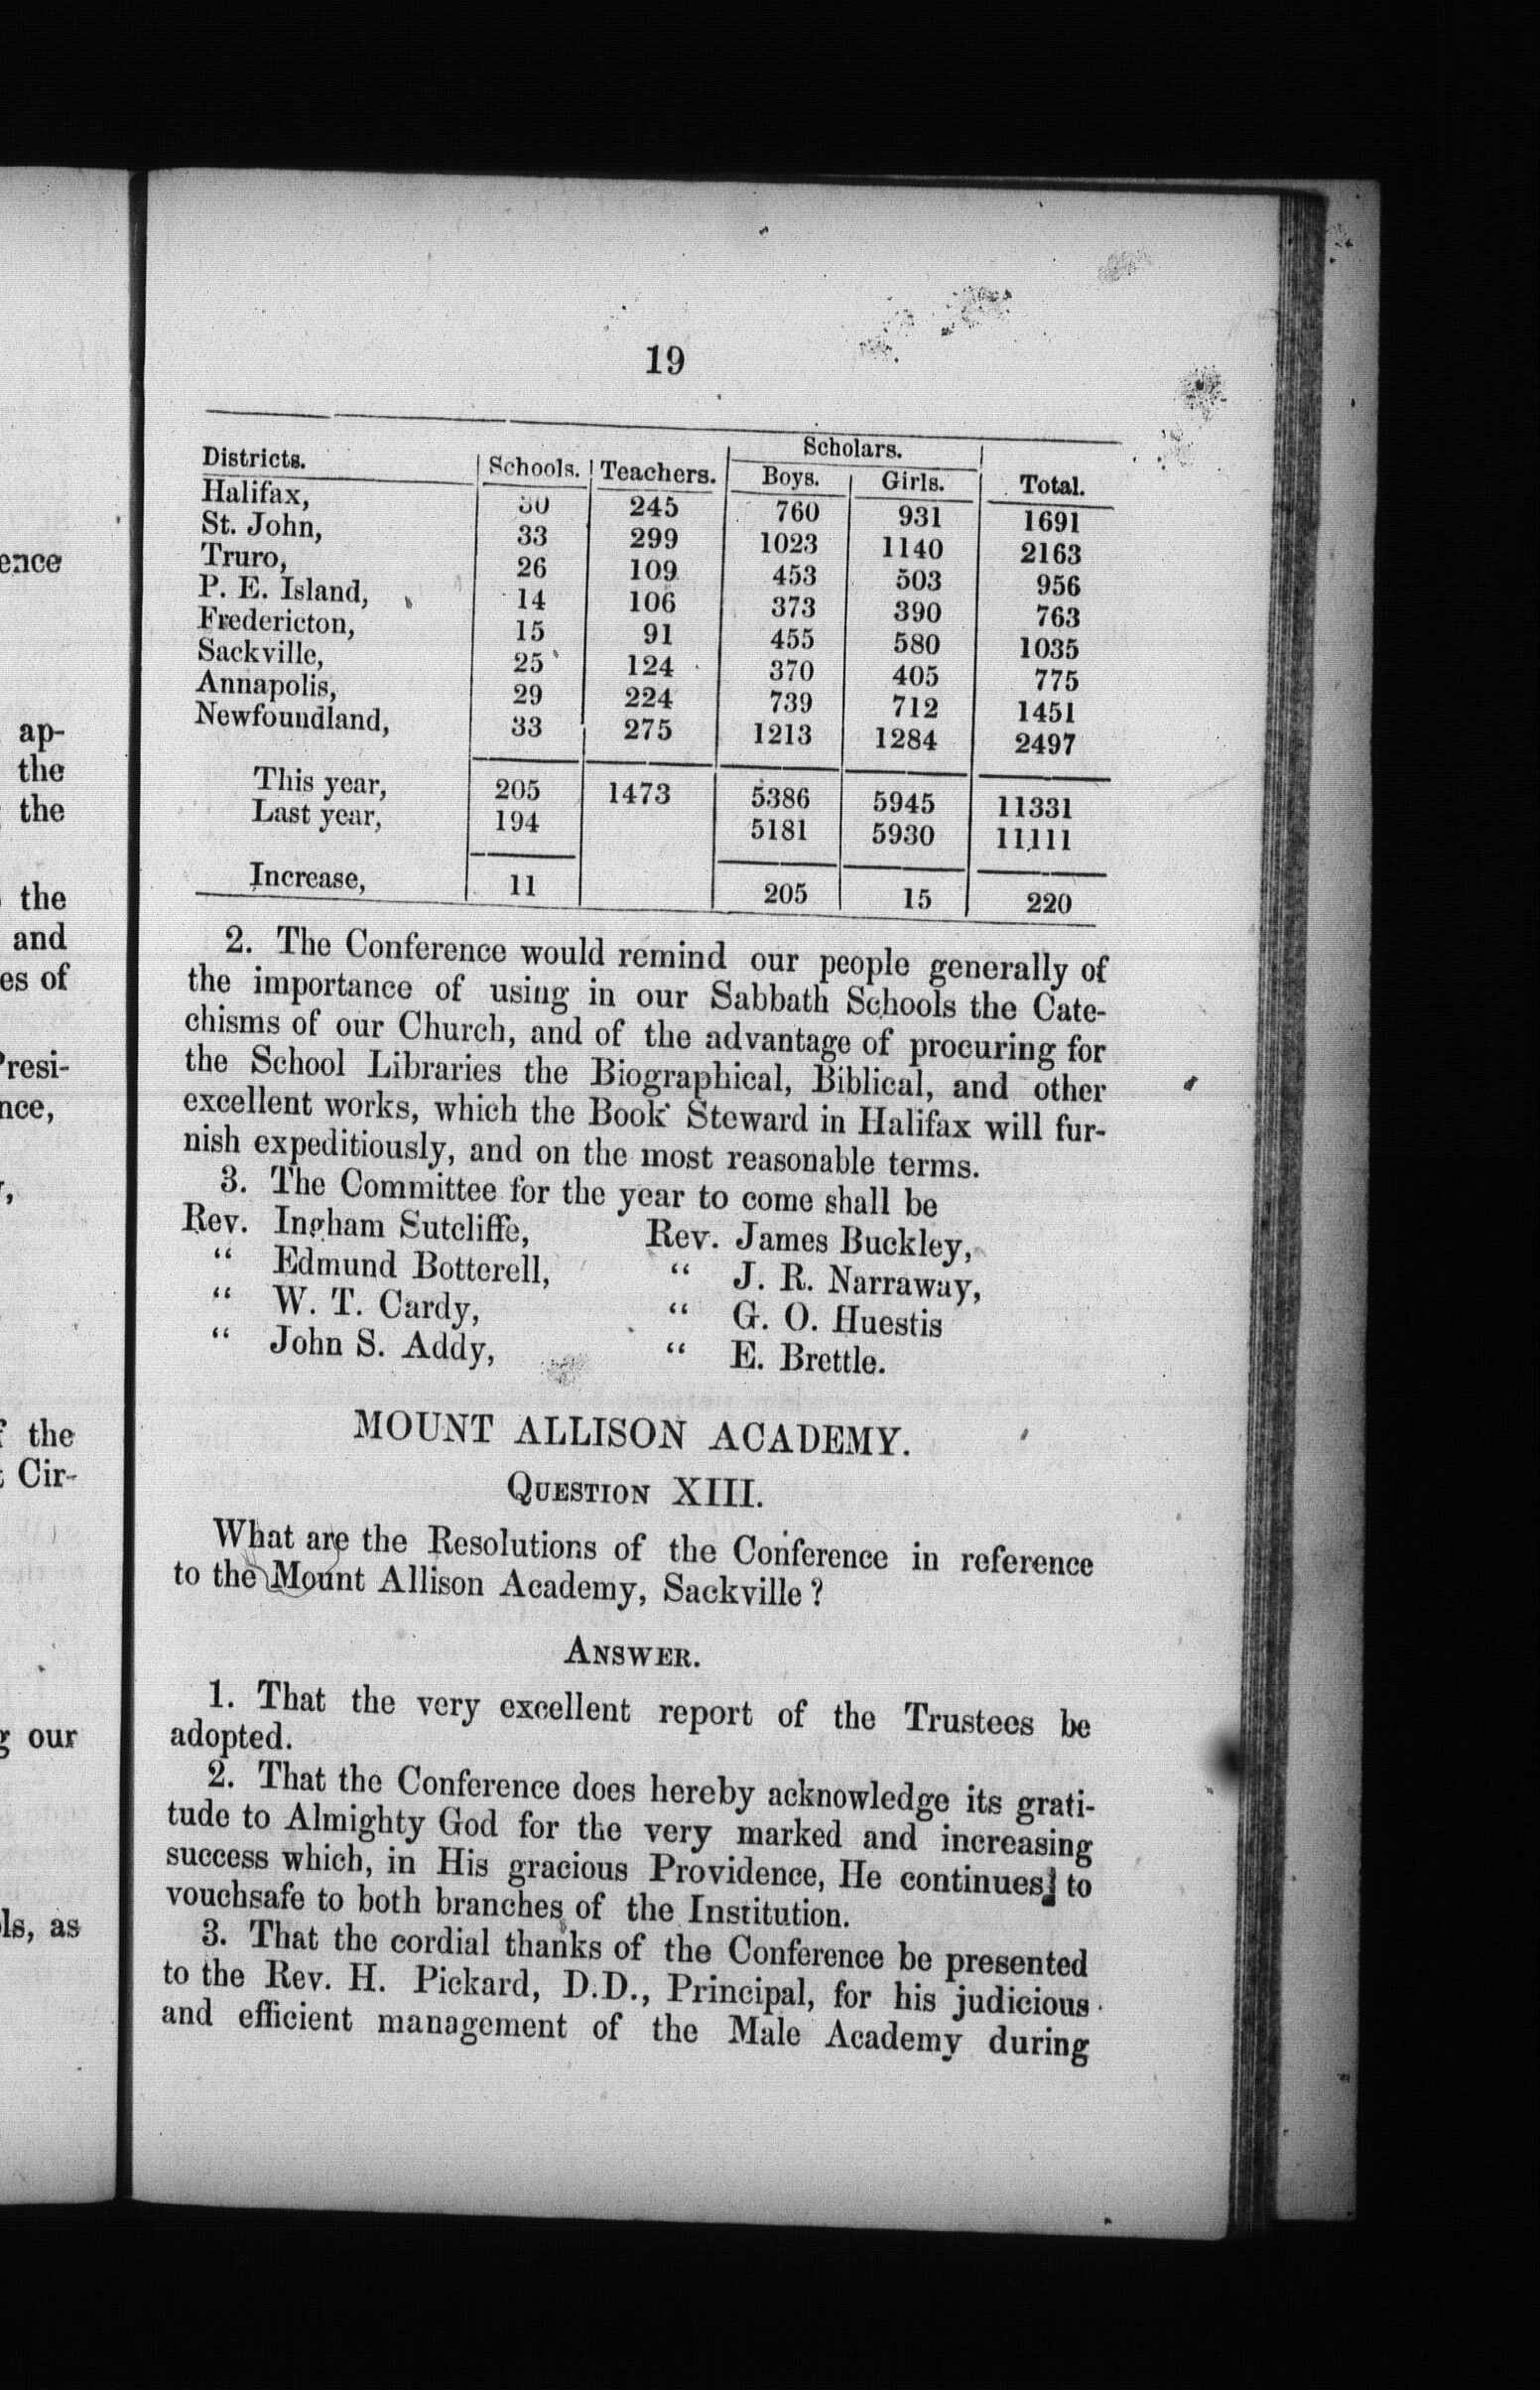 19
Scholars.
Districts. Schools. Teachers. Boys. Girls. Total.
Halifax, 30 245 760 931 1691
St. John, 33 299 1023 1140 2163
Truro, 26 109 453 503 956
P. E. Island, 14 106 373 390 763
Fredericton, 15 91 455 580 1035
Sackville, 25 124 370 405 775
Annapolis, 29 224 739 712 1451
Newfoundland, 33 275 1213 1284 2497
This year, 205 1473 5386 5945 11331
Last year, 194 5181 5930 11111
Increase, 11 205 15 220
2. The Conference would remind our people generally of
the importance of using in our Sabbath Schools the Cate-
chisms of our Church, and of the advantage of procuring for
the School Libraries the Biographical, Biblical, and other
excellent works, which the Book Steward in Halifax will fur-
nish expeditiously, and on the most reasonable terms.
3. The Committee for the year to come shall be
Rev. Ingham Sutcliffe, Rev. James Buckley,
“ Edmund Botterell, “ J. R. Narraway,
“ W. T. Cardy, “ G. O. Huestis
“ John S. Addy, “ E. Brettle.
MOUNT ALLISON ACADEMY.
QUESTION XIII.
What are the Resolutions of the Conference in reference
to the Mount Allison Academy, Sackville?
ANSWER.
1. That the very excellent report of the Trustees be
adopted.
2. That the Conference does hereby acknowledge its grati-
tude to Almighty God for the very marked and increasing
success which, in His gracious Providence, He continues to
vouchsafe to both branches of the Institution.
3. That the cordial thanks of the Conference be presented
to the Rev. H. Pickard, D.D., Principal, for his judicious
and efficient management of the Male Academy during